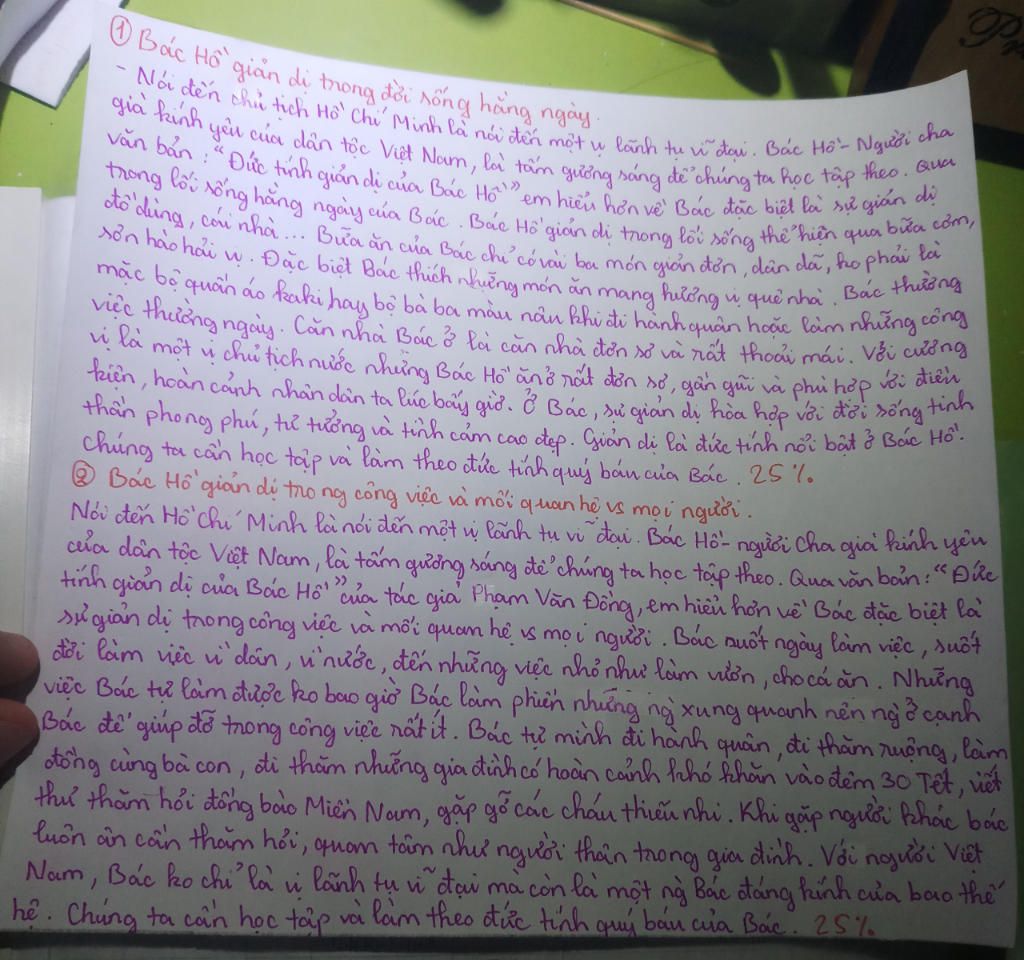 ① Bác Hồ giản dị trong đời sống hằng ngày.
- Nói đến chủ tịch Hồ Chí Minh là nói đến một vị lãnh tụ vĩ đại. Bác Hồ - Người cha
già kính yêu của dân tộc Việt Nam, là tấm gương sáng để chúng ta học tập theo. Qua
văn bản: "Đức tính giản dị của Bác Hồ" em hiểu hơn về Bác đặc biệt là sự giản dị
trong lối sống hằng ngày của Bác. Bác Hồ giản dị trong lối sống thể hiện qua bữa cơm,
đồ dùng, cái nhà... Bữa ăn của Bác chỉ có vài ba món giản đơn, dân dã, ko phải là
sơn hào hải vị. Đặc biệt Bác thích những món ăn mang hương vị quê nhà. Bác thường
mặc bộ quần áo kaki hay bộ bà ba màu nâu khi đi hành quân hoặc làm những công
việc thường ngày. Căn nhà Bác ở là căn nhà đơn sơ và rất thoải mái. Với cương
vị là một vị chủ tịch nước nhưng Bác Hồ ăn ở rất đơn sơ, gần gũi và phù hợp với điều
kiện, hoàn cảnh nhân dân ta lúc bấy giờ. Ở Bác, sự giản dị hòa hợp với đời sống tinh
thần phong phú, tư tưởng và tình cảm cao đẹp. Giản dị là đức tính nổi bật ở Bác Hồ.
Chúng ta cần học tập và làm theo đức tính quý báu của Bác. 25%
② Bác Hồ giản dị trong công việc và mối quan hệ vs mọi người.
Nói đến Hồ Chí Minh là nói đến một vị lãnh tụ vĩ đại. Bác Hồ - người cha già kính yêu
của dân tộc Việt Nam, là tấm gương sáng để chúng ta học tập theo. Qua văn bản: "Đức
tính giản dị của Bác Hồ" của tác giả Phạm Văn Đồng, em hiểu hơn về Bác đặc biệt là
sự giản dị trong công việc và mối quan hệ vs mọi người. Bác suốt ngày làm việc, suốt
đời làm việc vì dân, vì nước, đến những việc nhỏ như làm vườn, cho cá ăn. Những
việc Bác tự làm được ko bao giờ Bác làm phiền những ng` xung quanh nên ng` ở cạnh
Bác để giúp đỡ trong công việc rất ít. Bác tự mình đi hành quân, đi thăm ruộng, làm
đồng cùng bà con, đi thăm những gia đình có hoàn cảnh khó khăn vào đêm 30 Tết, viết
thư thăm hỏi đồng bào Miền Nam, gặp gỡ các cháu thiếu nhi. Khi gặp người khác bác
luôn ân cần thăm hỏi, quan tâm như người thân trong gia đình. Với người Việt
Nam, Bác ko chỉ là vị lãnh tụ vĩ đại mà còn là một ng` Bác đáng kính của bao thế
hệ. Chúng ta cần học tập và làm theo đức tính quý báu của Bác. 25%